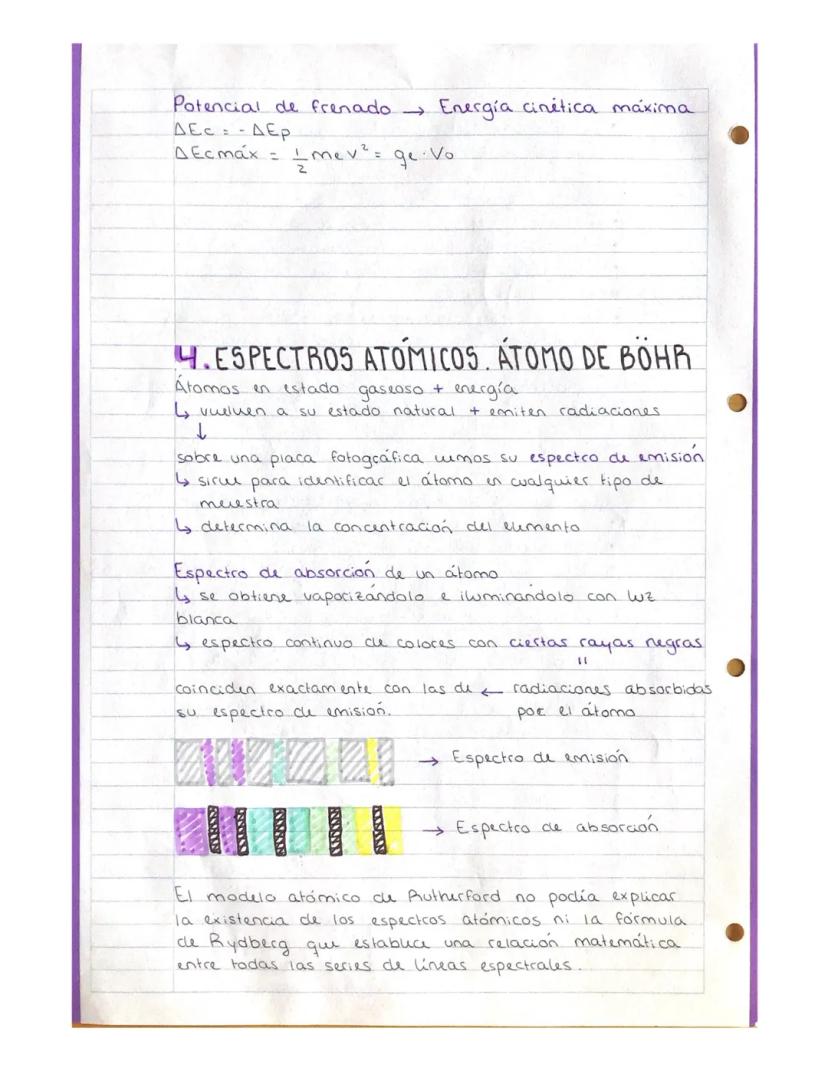 Potencial de frenado → Energía cinética máxima
ΔEc = - ΔEp
ΔEcmáx = 1/2 me v² = qe · Vo
4. ESPECTROS ATÓMICOS. ÁTOMO DE BÖHR
Átomos en estado gaseoso + energía
↳ vuelven a su estado natural + emiten radiaciones
↓
sobre una placa fotográfica vemos su espectro de emisión
↳ sirve para identificar el átomo en cualquier tipo de
muestra
↳ determina la concentración del elemento
Espectro de absorción de un átomo
↳ se obtiene vaporizándolo e iluminándolo con luz
blanca
↳ espectro continuo de colores con ciertas rayas negras
=
coinciden exactamente con las de ← radiaciones absorbidas
su espectro de emisión. por el átomo
→ Espectro de emisión
→ Espectro de absorción
El modelo atómico de Rutherford no podía explicar
la existencia de los espectros atómicos ni la fórmula
de Rydberg que establece una relación matemática
entre todas las series de líneas espectrales.